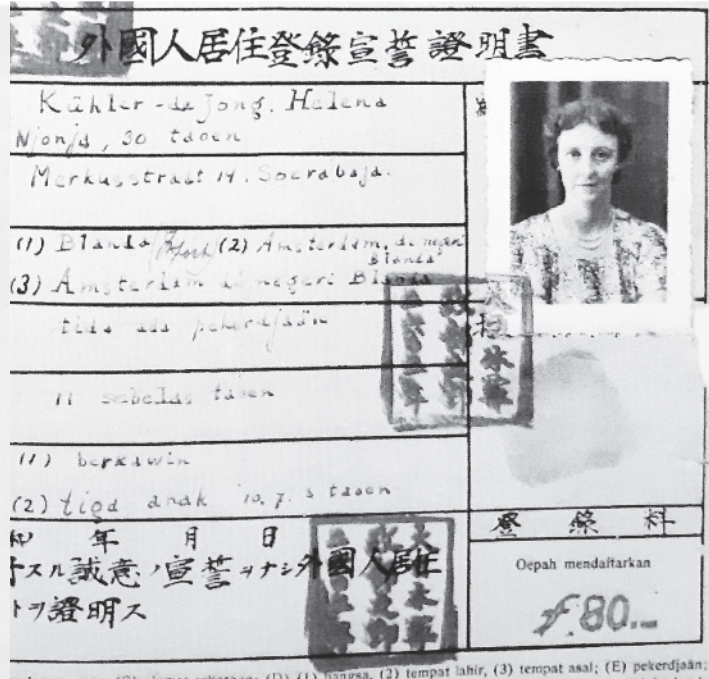 外國人居住登錄宣誓證明書
Kähler-de Jong, Helena
Njonja, 30 taoen
Merkusstraat 14. Soerabaja.
(1) Blanda (2) Amsterdam, di negeri
Blanda
(3) Amsterdam di negeri Blanda
tida ada pekerdjaän
11 sebelas taoen
(1) berkawin
(2) tiga anak 10. 7. 3 taoen
年 月 日
スル誠意ノ宣誓ヲナシ外國人居住
ヲ證明ス
登錄料
Oepah mendaftarkan
f. 80.—
(1) bangsa, (2) tempat lahir, (3) tempat asal; (E) pekerdjaän;